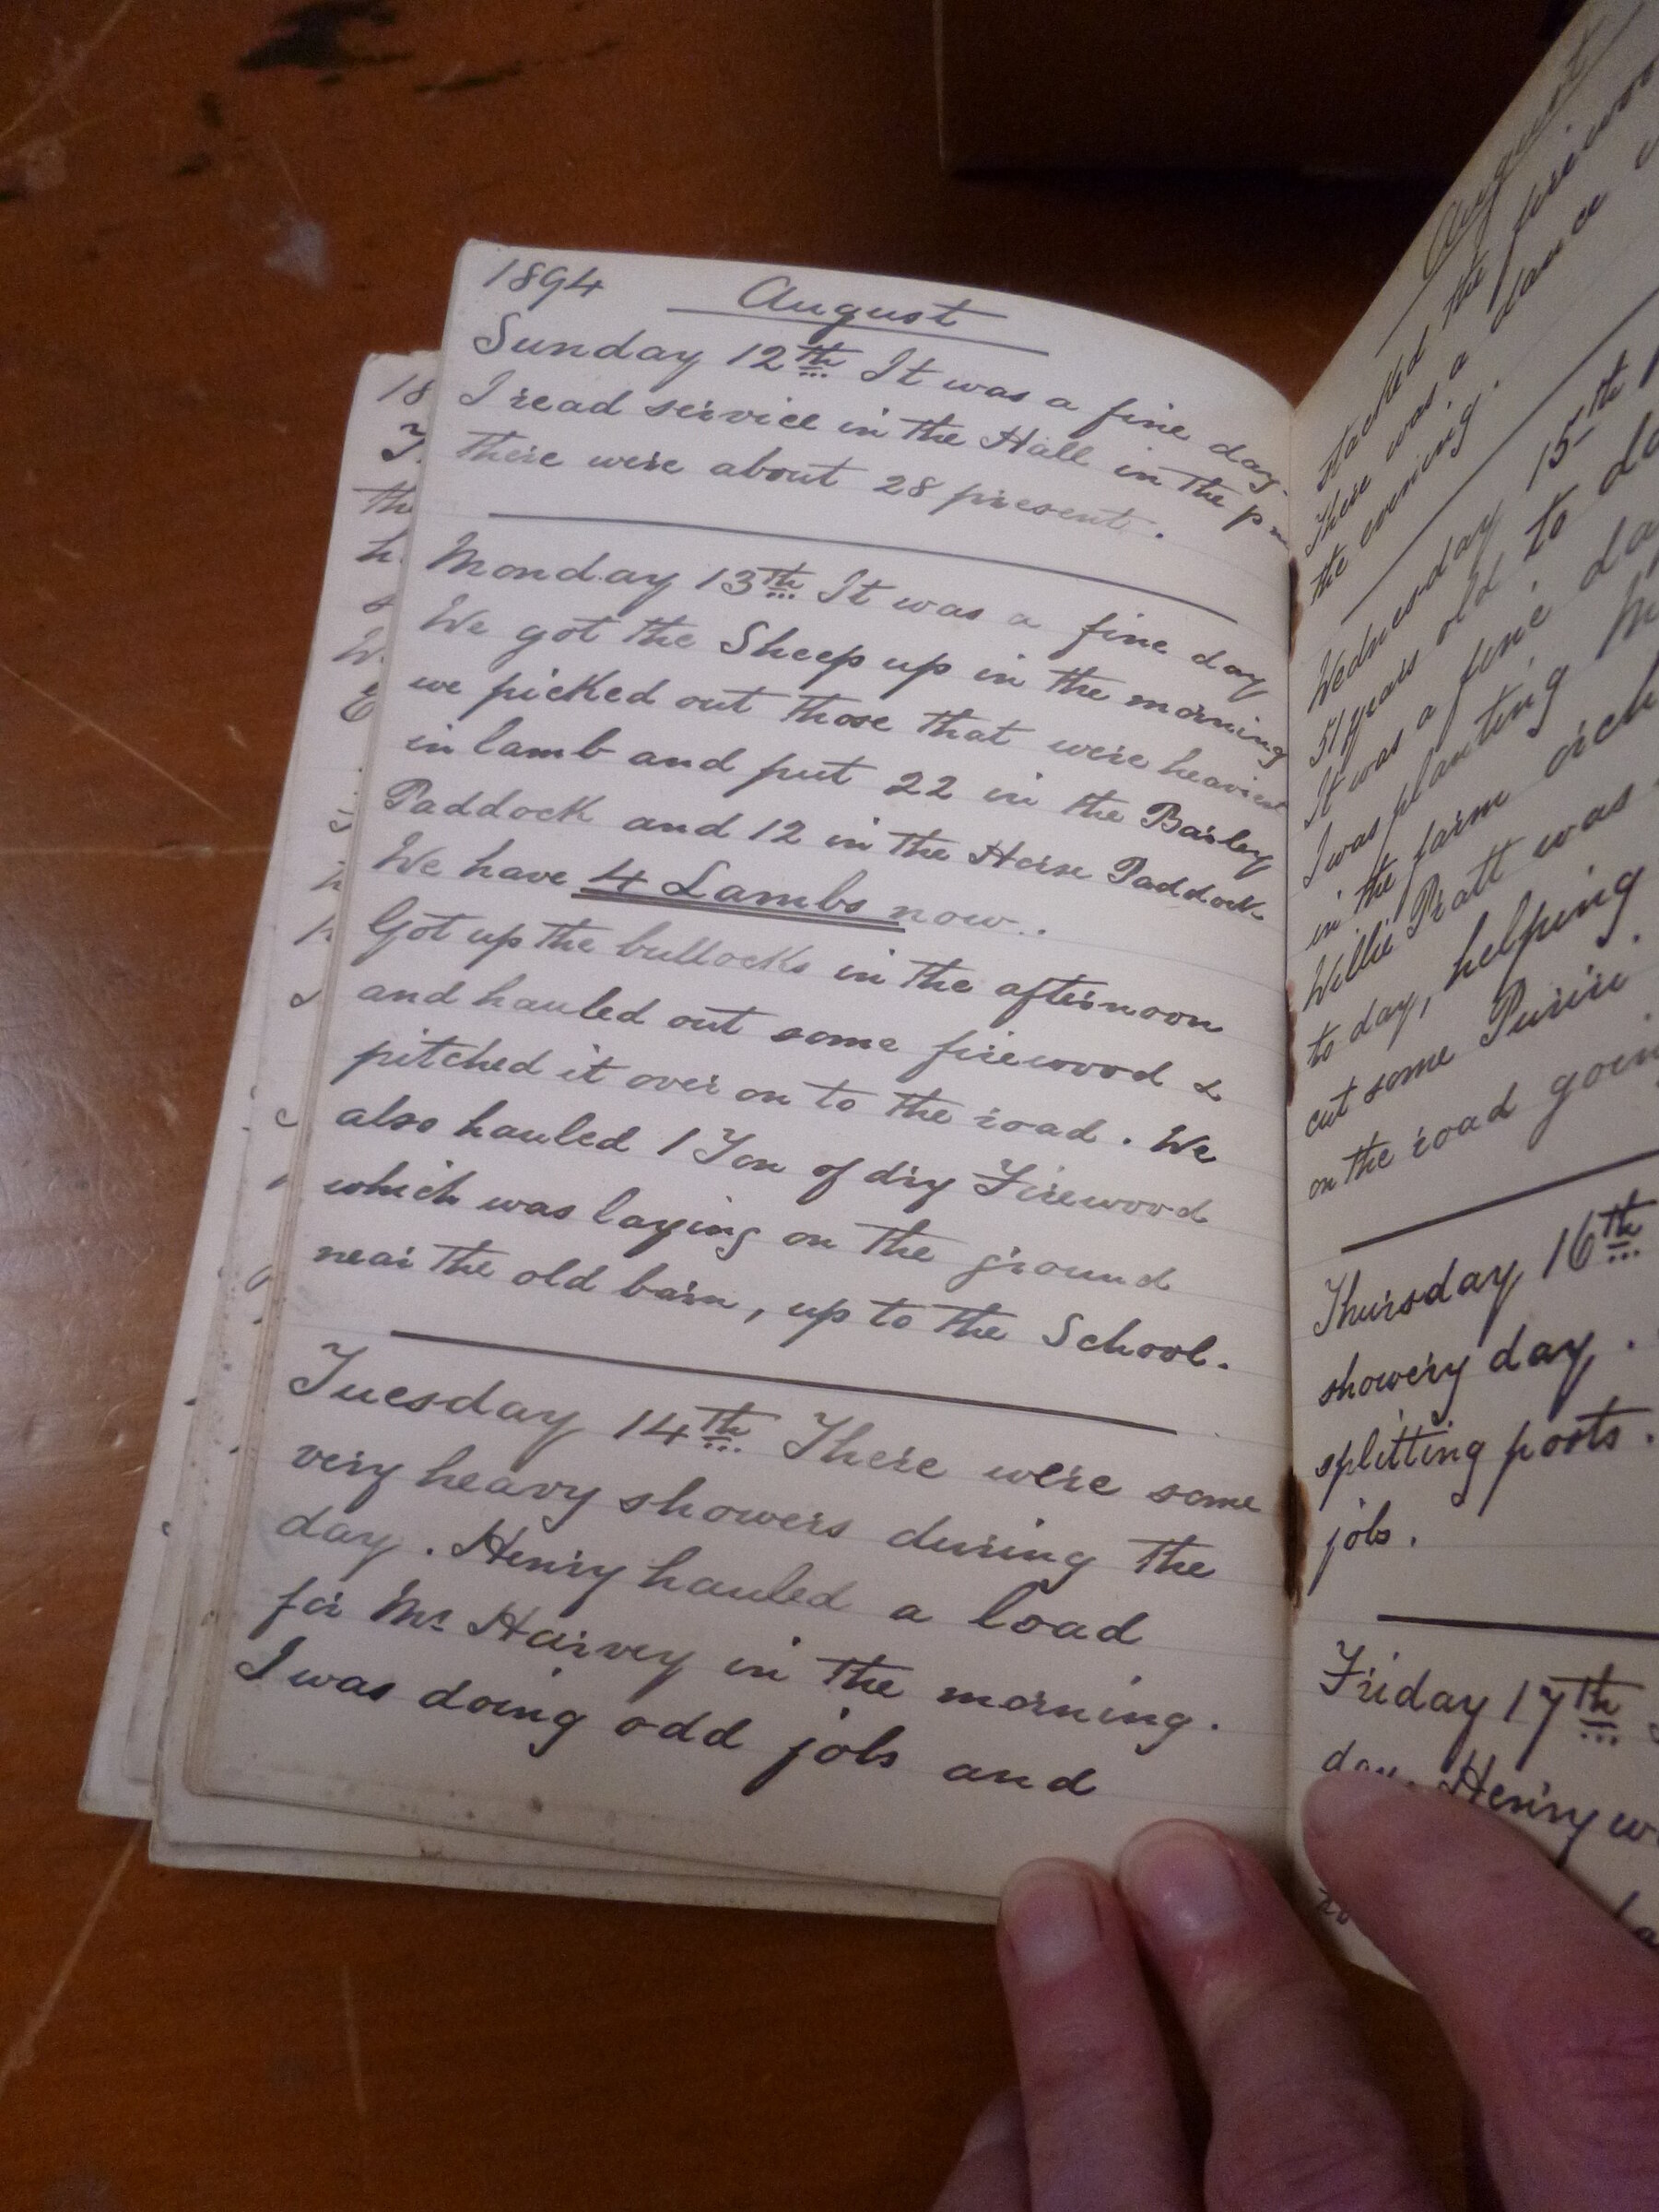 1894 August
Sunday 12th It was a fine day.
I read service in the Hall in the pm
There were about 28 present.
Monday 13th It was a fine day
We got the Sheep up in the morning
we picked out those that were heaviest
in lamb and put 22 in the Barley
Paddock and 12 in the Horse Paddock
We have 4 Lambs now..
Got up the bullocks in the afternoon
and hauled out some firewood &
pitched it over on to the road. We
also hauled 1 Ton of dry Firewood
which was laying on the ground
near the old barn, up to the School.
Tuesday 14th There were some
very heavy showers during the
day. Henry hauled a load
for Mr Harvey in the morning.
I was doing odd jobs and
August
stacked the firewood
There was a dance
the evening.
Wednesday 15th
51 years old to day
It was a fine day
I was planting
in the farm orch
Willie Pratt was
to day, helping
cut some Puriri
on the road
Thursday 16th
showery day.
splitting posts.
jobs.
Friday 17th
day. Henry